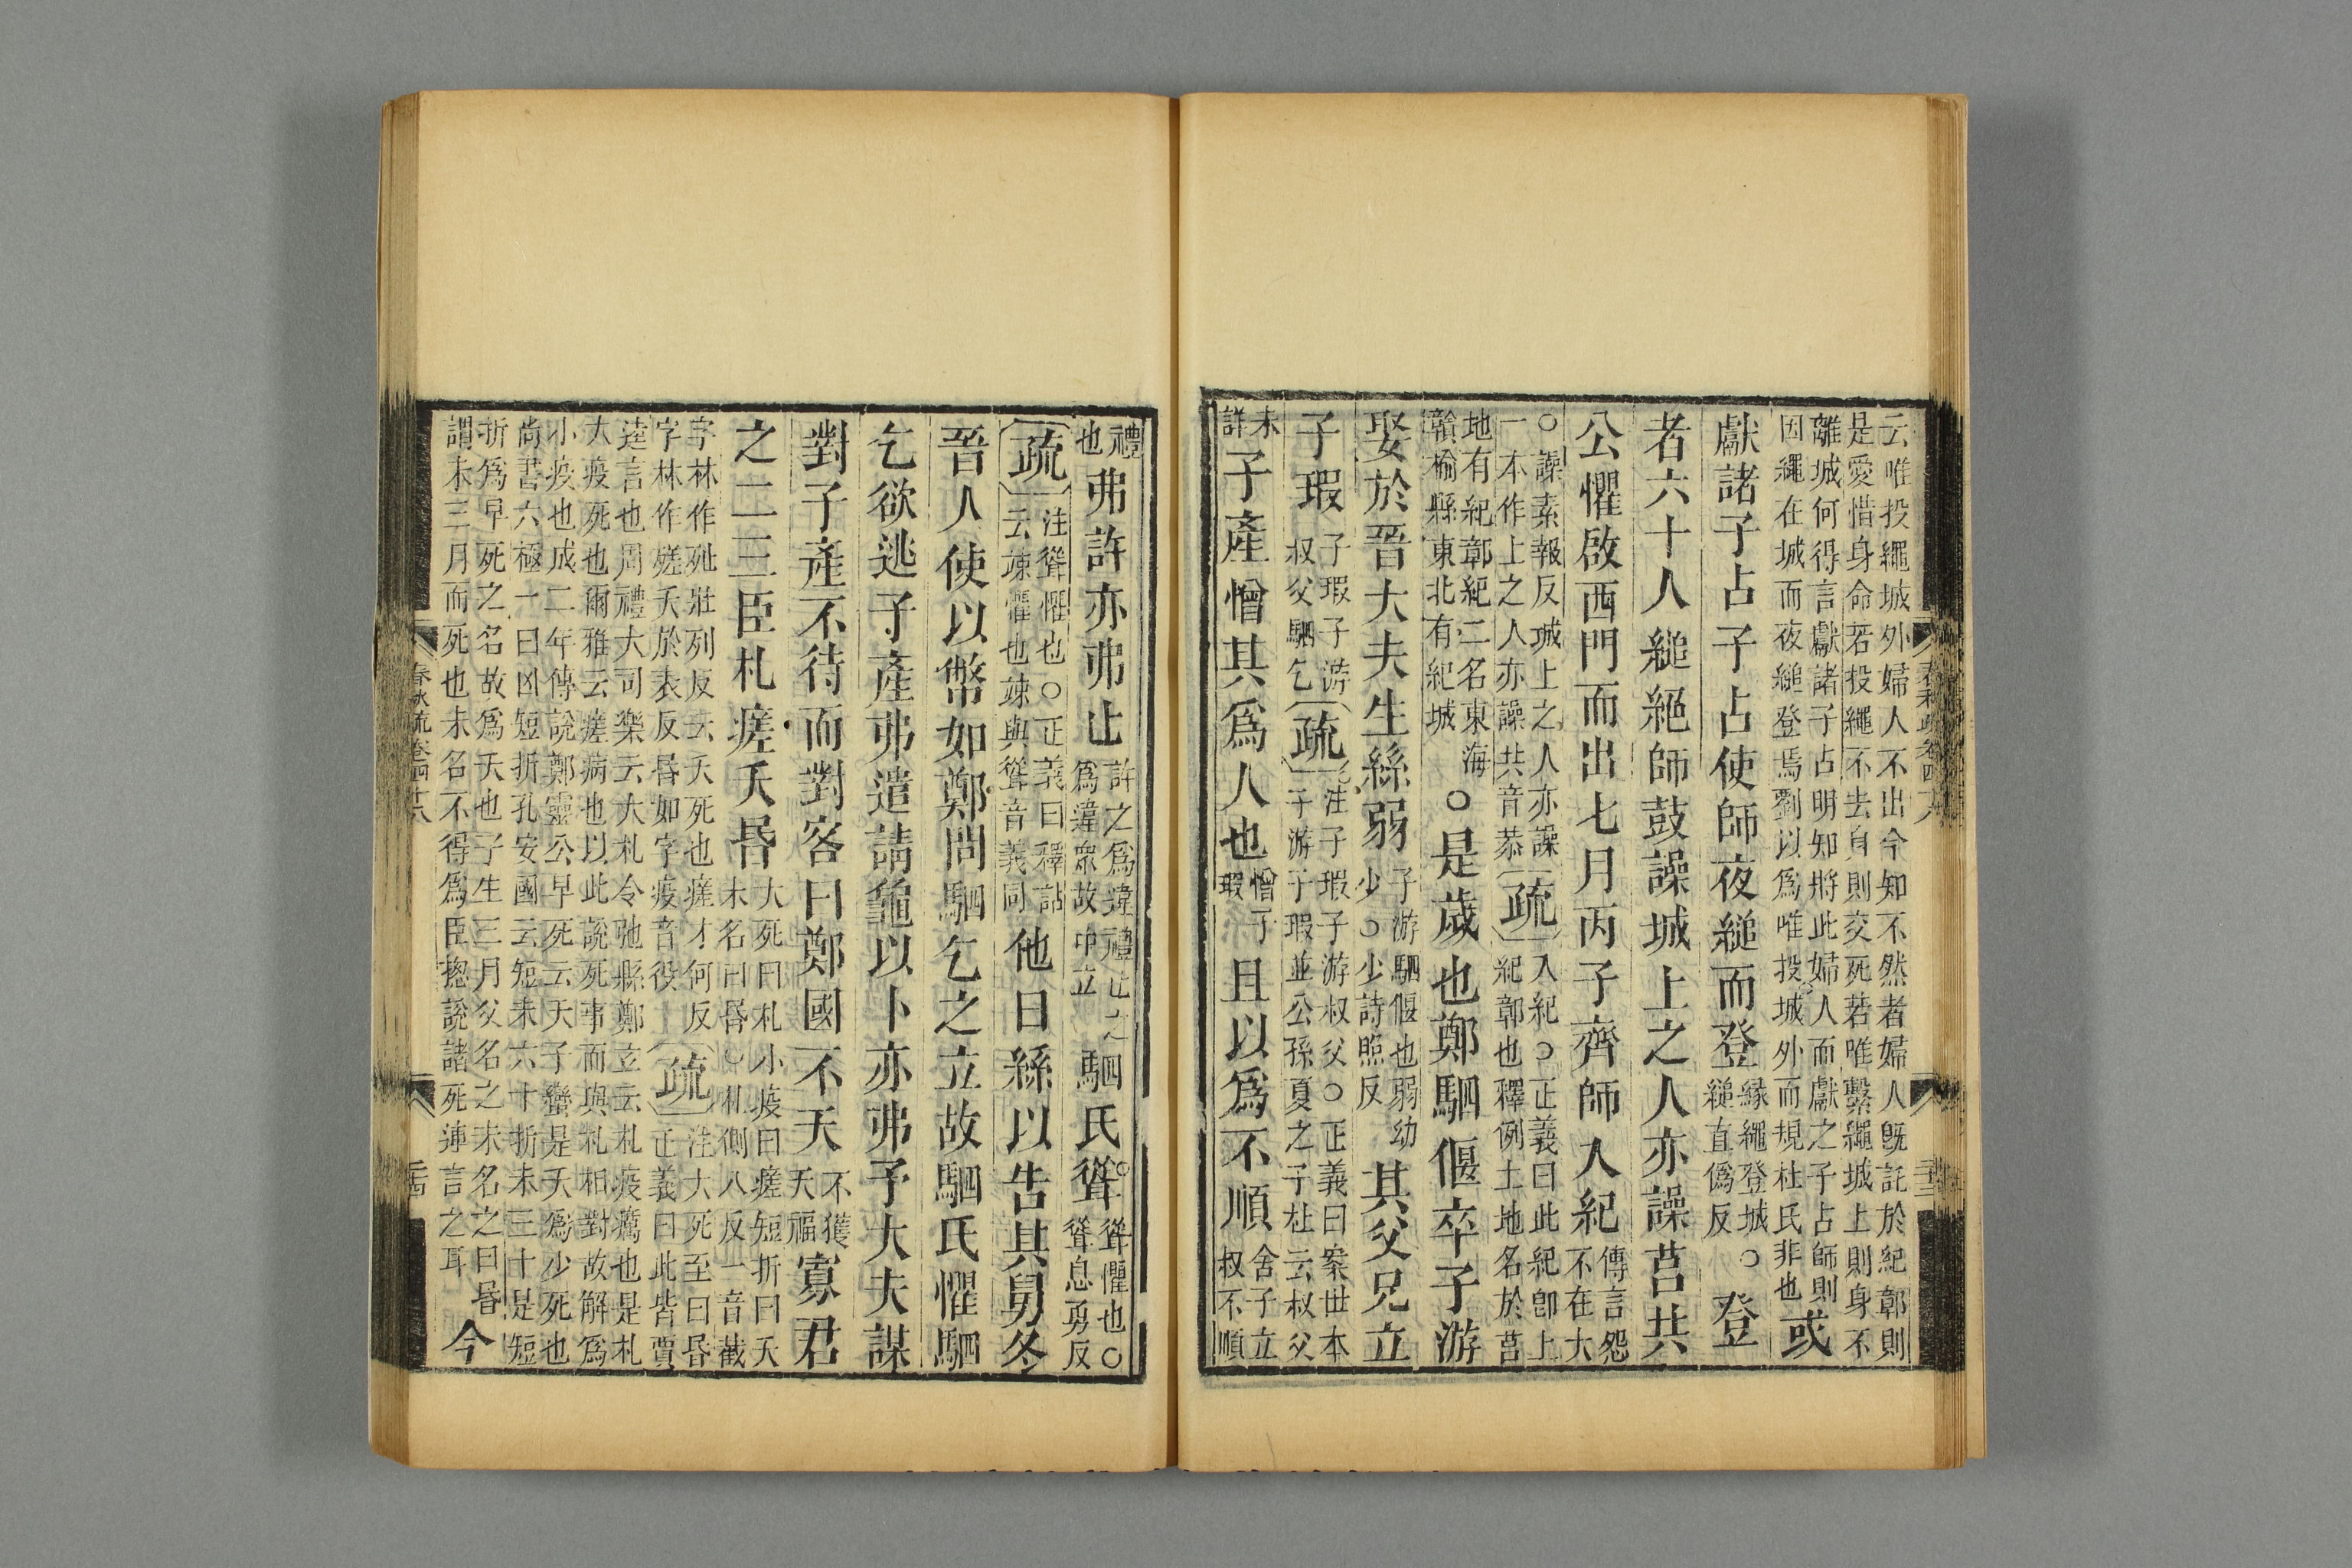 云唯投繩城外婦人不出今知不然者婦人既託於紀鄣則
是愛惜身命若投繩不去身則交死若唯繫繩城上則身不
離城何得言獻諸子占明知將此婦人而獻之子占師則
因繩在城而夜縋登焉劉以爲唯投城外而規杜氏非也或
獻諸子占子占使師夜縋而登緣繩登城○縋直僞反登
者六十人縋絕師鼓譟城上之人亦譟莒共
公懼啟西門而出七月丙子齊師入紀傳言怨不在大
○譟素報反城上之人亦譟
一本作上之人亦譟共音恭疏入紀○正義曰此紀卽上紀鄣也釋例土地名於莒
地有紀鄣紀二名東海
贛榆縣東北有紀城○是歲也鄭駟偃卒子游
娶於晉大夫生絲弱子游駟偃也弱幼少○少詩照反其父兄立
子瑕子瑕子游叔父駟乞疏注子瑕子游叔父○正義曰案世本子游子瑕並公孫夏之子杜云叔父
未詳子產憎其爲人也憎子瑕且以爲不順舍子立叔不順
禮也弗許亦弗止許之爲違禮止之爲違眾故中立駟氏聳聳懼也○聳息勇反
疏注聳懼也○正義曰釋詁云竦懼也竦與聳音義同他日絲以告其舅冬
晉人使以幣如鄭問駟乞之立故駟氏懼駟
乞欲逃子產弗遣請龜以卜亦弗予大夫謀
對子產不待而對客曰鄭國不天不獲天福寡君
之二三臣札瘥夭昏大死曰札小疫曰瘥短折曰夭未名曰昏○札側八反一音截
字林作𣧂壯列反云夭死也瘥才何反
字林作㾨夭於表反昏如字疫音役疏注大死至曰昏正義曰此皆賈
逵言也周禮大司樂云大札令弛縣鄭玄云札疫癘也是札
大疫死也爾雅云瘥病也以此說死事而與札相對故解爲
小疫也成二年傳說鄭靈公早死云夭子蠻是夭爲少死也
尚書六極一曰凶短折孔安國云短未六十折未三十是短
折爲早死之名故爲夭也子生三月父名之未名之曰昏
謂未三月而死也未名不得爲臣揔說諸死連言之耳今
春秋疏卷四十八
二十四